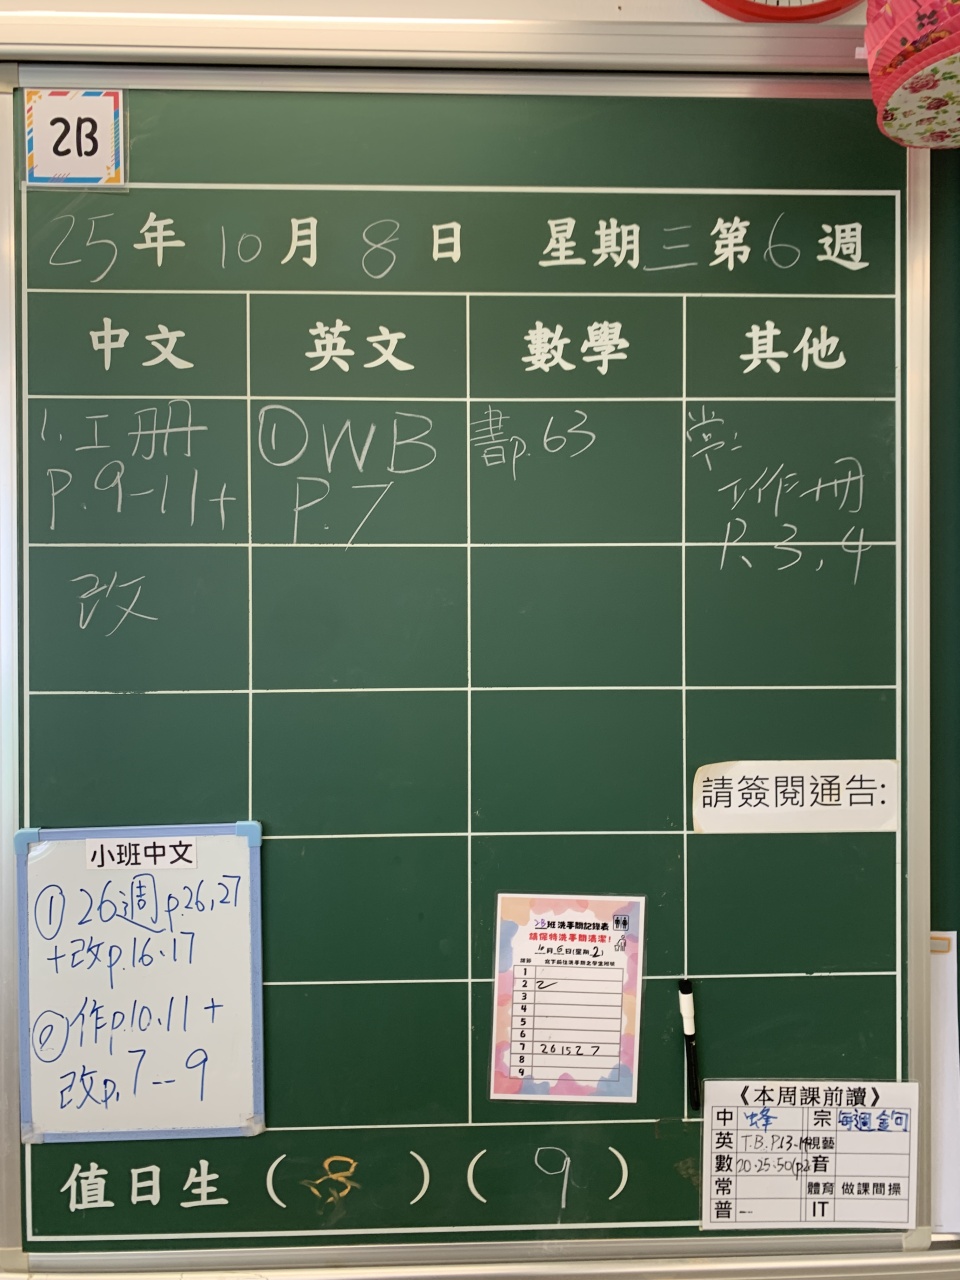 2B
25年 10月 8日 星期三第6週
中文 英文 數學 其他
1.工册
P.9-11+
改
①WB
P.7
書p.63
常:
工作冊
P.3,4
請簽閱通告:
小班中文
① 26週p.26,27
+改p.16.17
② 作p.10.11+
改p.7--9
2B班洗手間記錄表
請保持洗手間清潔!
10月6日(星期2)
1
2 2
3
4
5
6
7 26 15 2 7
8
9
《本周課前讀》
中 蜂 宗 每週金句
英 T.B. P.13-14 視藝
數 20.25.50 音
常 體育 做課間操
普 -- IT
值日生 ( 8 ) ( 9 )